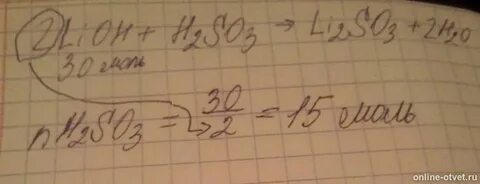 2LiOH + H2SO3 → Li2SO3 + 2H2O
30 моль
nH2SO3 = 30/2 = 15 моль
online-otvet.ru